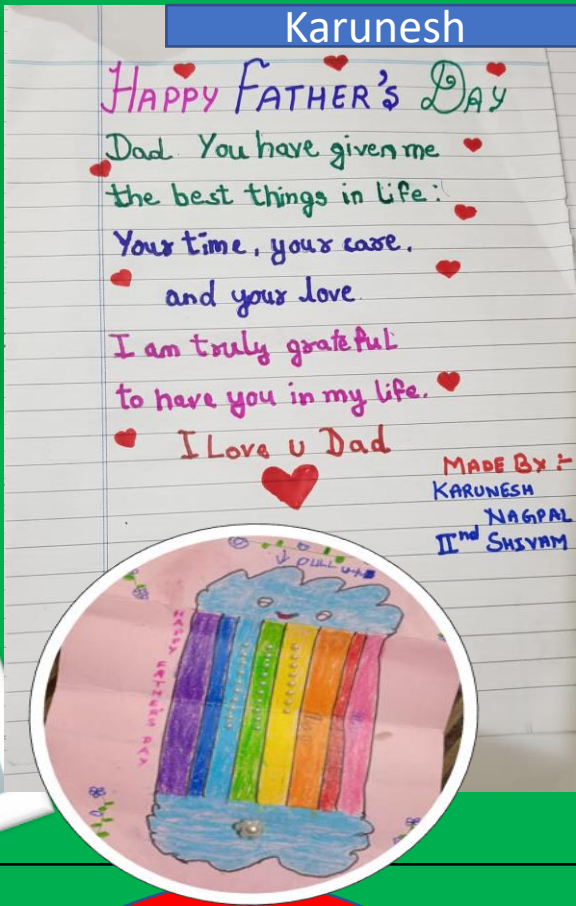 Karunesh
HAPPY FATHER'S DAY
Dad You have given me
the best things in life:
Your time, your care,
and your love.
I am truly grateful
to have you in my life.
I Love u Dad
MADE BY :-
KARUNESH
NAGPAL
IInd SHIVAM
↓ PULL
HAPPY FATHER'S DAY